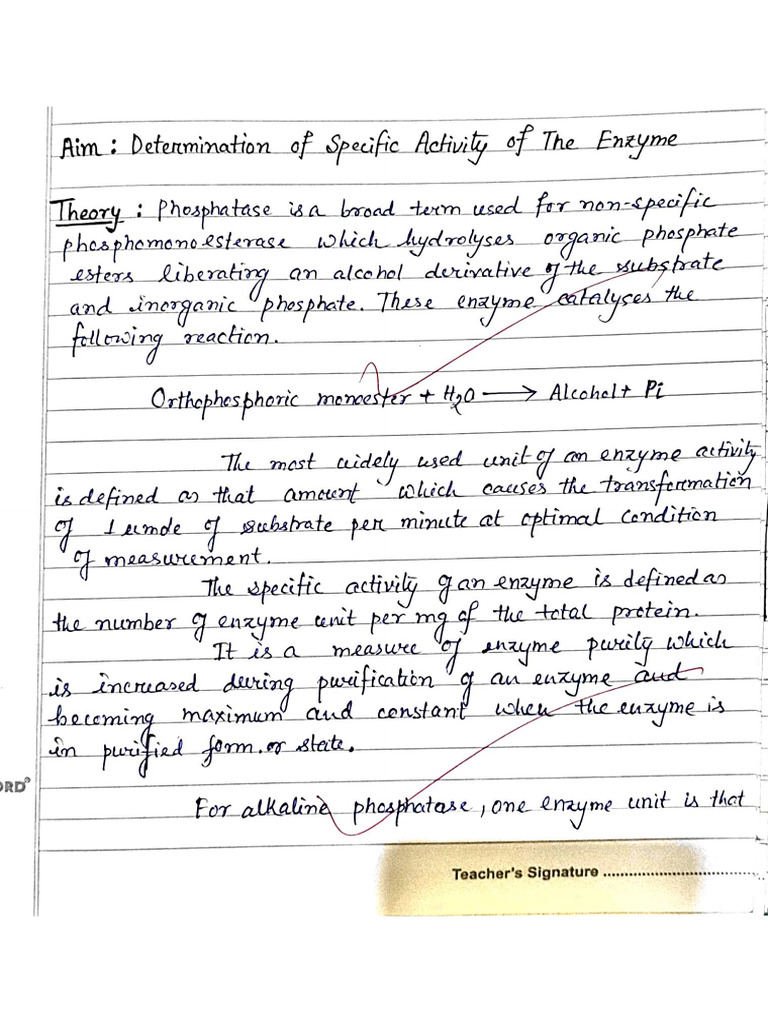 Aim : Determination of Specific Activity of The Enzyme
Theory : Phosphatase is a broad term used for non-specific
phosphomonoesterase which hydrolyses organic phosphate
esters liberating an alcohol derivative of the substrate
and inorganic phosphate. These enzyme catalyses the
following reaction.
Orthophosphoric monoester + H2O ⟶ Alcohol + Pi
The most widely used unit of an enzyme activity
is defined as that amount which causes the transformation
of 1 umole of substrate per minute at optimal condition
of measurement.
The specific activity of an enzyme is defined as
the number of enzyme unit per mg of the total protein.
It is a measure of enzyme purity which
is increased during purification of an enzyme and
becoming maximum and constant when the enzyme is
in purified form. or state.
ORD®
For alkaline phosphatase, one enzyme unit is that
Teacher's Signature ..............................